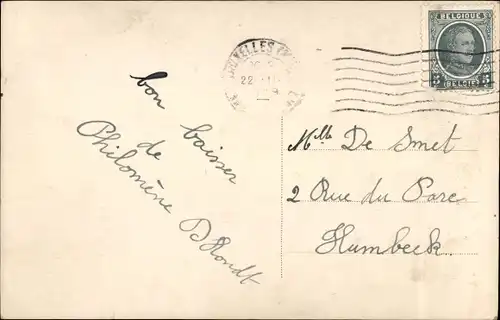 BRUXELLES
22
BELGIQUE
5 5
BELGIË
bon baiser
de
Philomène D'Hondt
Mlle De Smet
2 Rue du Parc
Humbeek